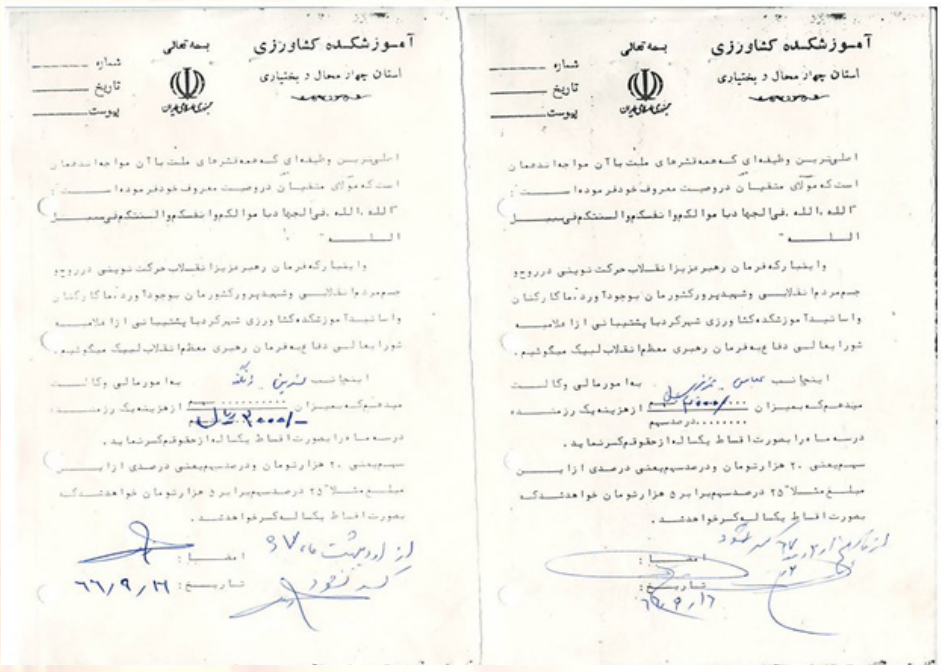 آموزشکده کشاورزی
استان چهار محال و بختیاری
بسمه تعالی
جمهوری اسلامی ایران
شماره
تاریخ
پیوست
اصلی‌ترین وظیفه‌ای که همه قشرهای ملت با آن مواجه‌اند همان
است که مولای متقیان در وصیت معروف خود فرموده است :
"الله ،الله ،فی الجهاد با موالکم وا نفسکم وا لسنتکم فی سبیل
الله "
وا ینبار که فرمان رهبر عزیز انقلاب حرکت نوینی در روح و
جسم مردم انقلابی و شهیدپرور کشورمان بوجود آورد ،ما کارکنان
واساتید آموزشکده کشاورزی شهرکرد با پشتیبانی از اعلامیه
شورایعالی دفاع به فرمان رهبری معظم انقلاب لبیک میگوئیم .
اینجانب به امور مالی وکالت
میدهم که بمیزان ۳۰۰۰/- ریال سهم از هزینه یک رزمنده
درسه ماه را بصورت اقساط یکساله از حقوقم کسر نماید .
سهم یعنی ۲۰ هزار تومان و درصد سهم یعنی درصدی از این
مبلغ مثلا "۲۵ درصد سهم برابر ۵ هزار تومان خواهد شد که
بصورت اقساط یکساله کسر خواهد شد .
از اردیبهشت ماه ۶۷
کسر شود
امضاء :
تاریخ : ۶۶/۹/۱۶
آموزشکده کشاورزی
استان چهار محال و بختیاری
بسمه تعالی
جمهوری اسلامی ایران
شماره
تاریخ
پیوست
اصلی‌ترین وظیفه‌ای که همه قشرهای ملت با آن مواجه‌اند همان
است که مولای متقیان در وصیت معروف خود فرموده است :
"الله ،الله ،فی الجهاد با موالکم وا نفسکم وا لسنتکم فی سبیل
الله "
وا ینبار که فرمان رهبر عزیز انقلاب حرکت نوینی در روح و
جسم مردم انقلابی و شهیدپرور کشورمان بوجود آورد ،ما کارکنان
واساتید آموزشکده کشاورزی شهرکرد با پشتیبانی از اعلامیه
شورایعالی دفاع به فرمان رهبری معظم انقلاب لبیک میگوئیم .
اینجانب عباس به امور مالی وکالت
میدهم که بمیزان سهم از هزینه یک رزمنده
درصد سهم
درسه ماه را بصورت اقساط یکساله از حقوقم کسر نماید .
سهم یعنی ۲۰ هزار تومان و درصد سهم یعنی درصدی از این
مبلغ مثلا "۲۵ درصد سهم برابر ۵ هزار تومان خواهد شد که
بصورت اقساط یکساله کسر خواهد شد .
کسر شود
امضاء :
تاریخ :
۶۶/۹/۱۶